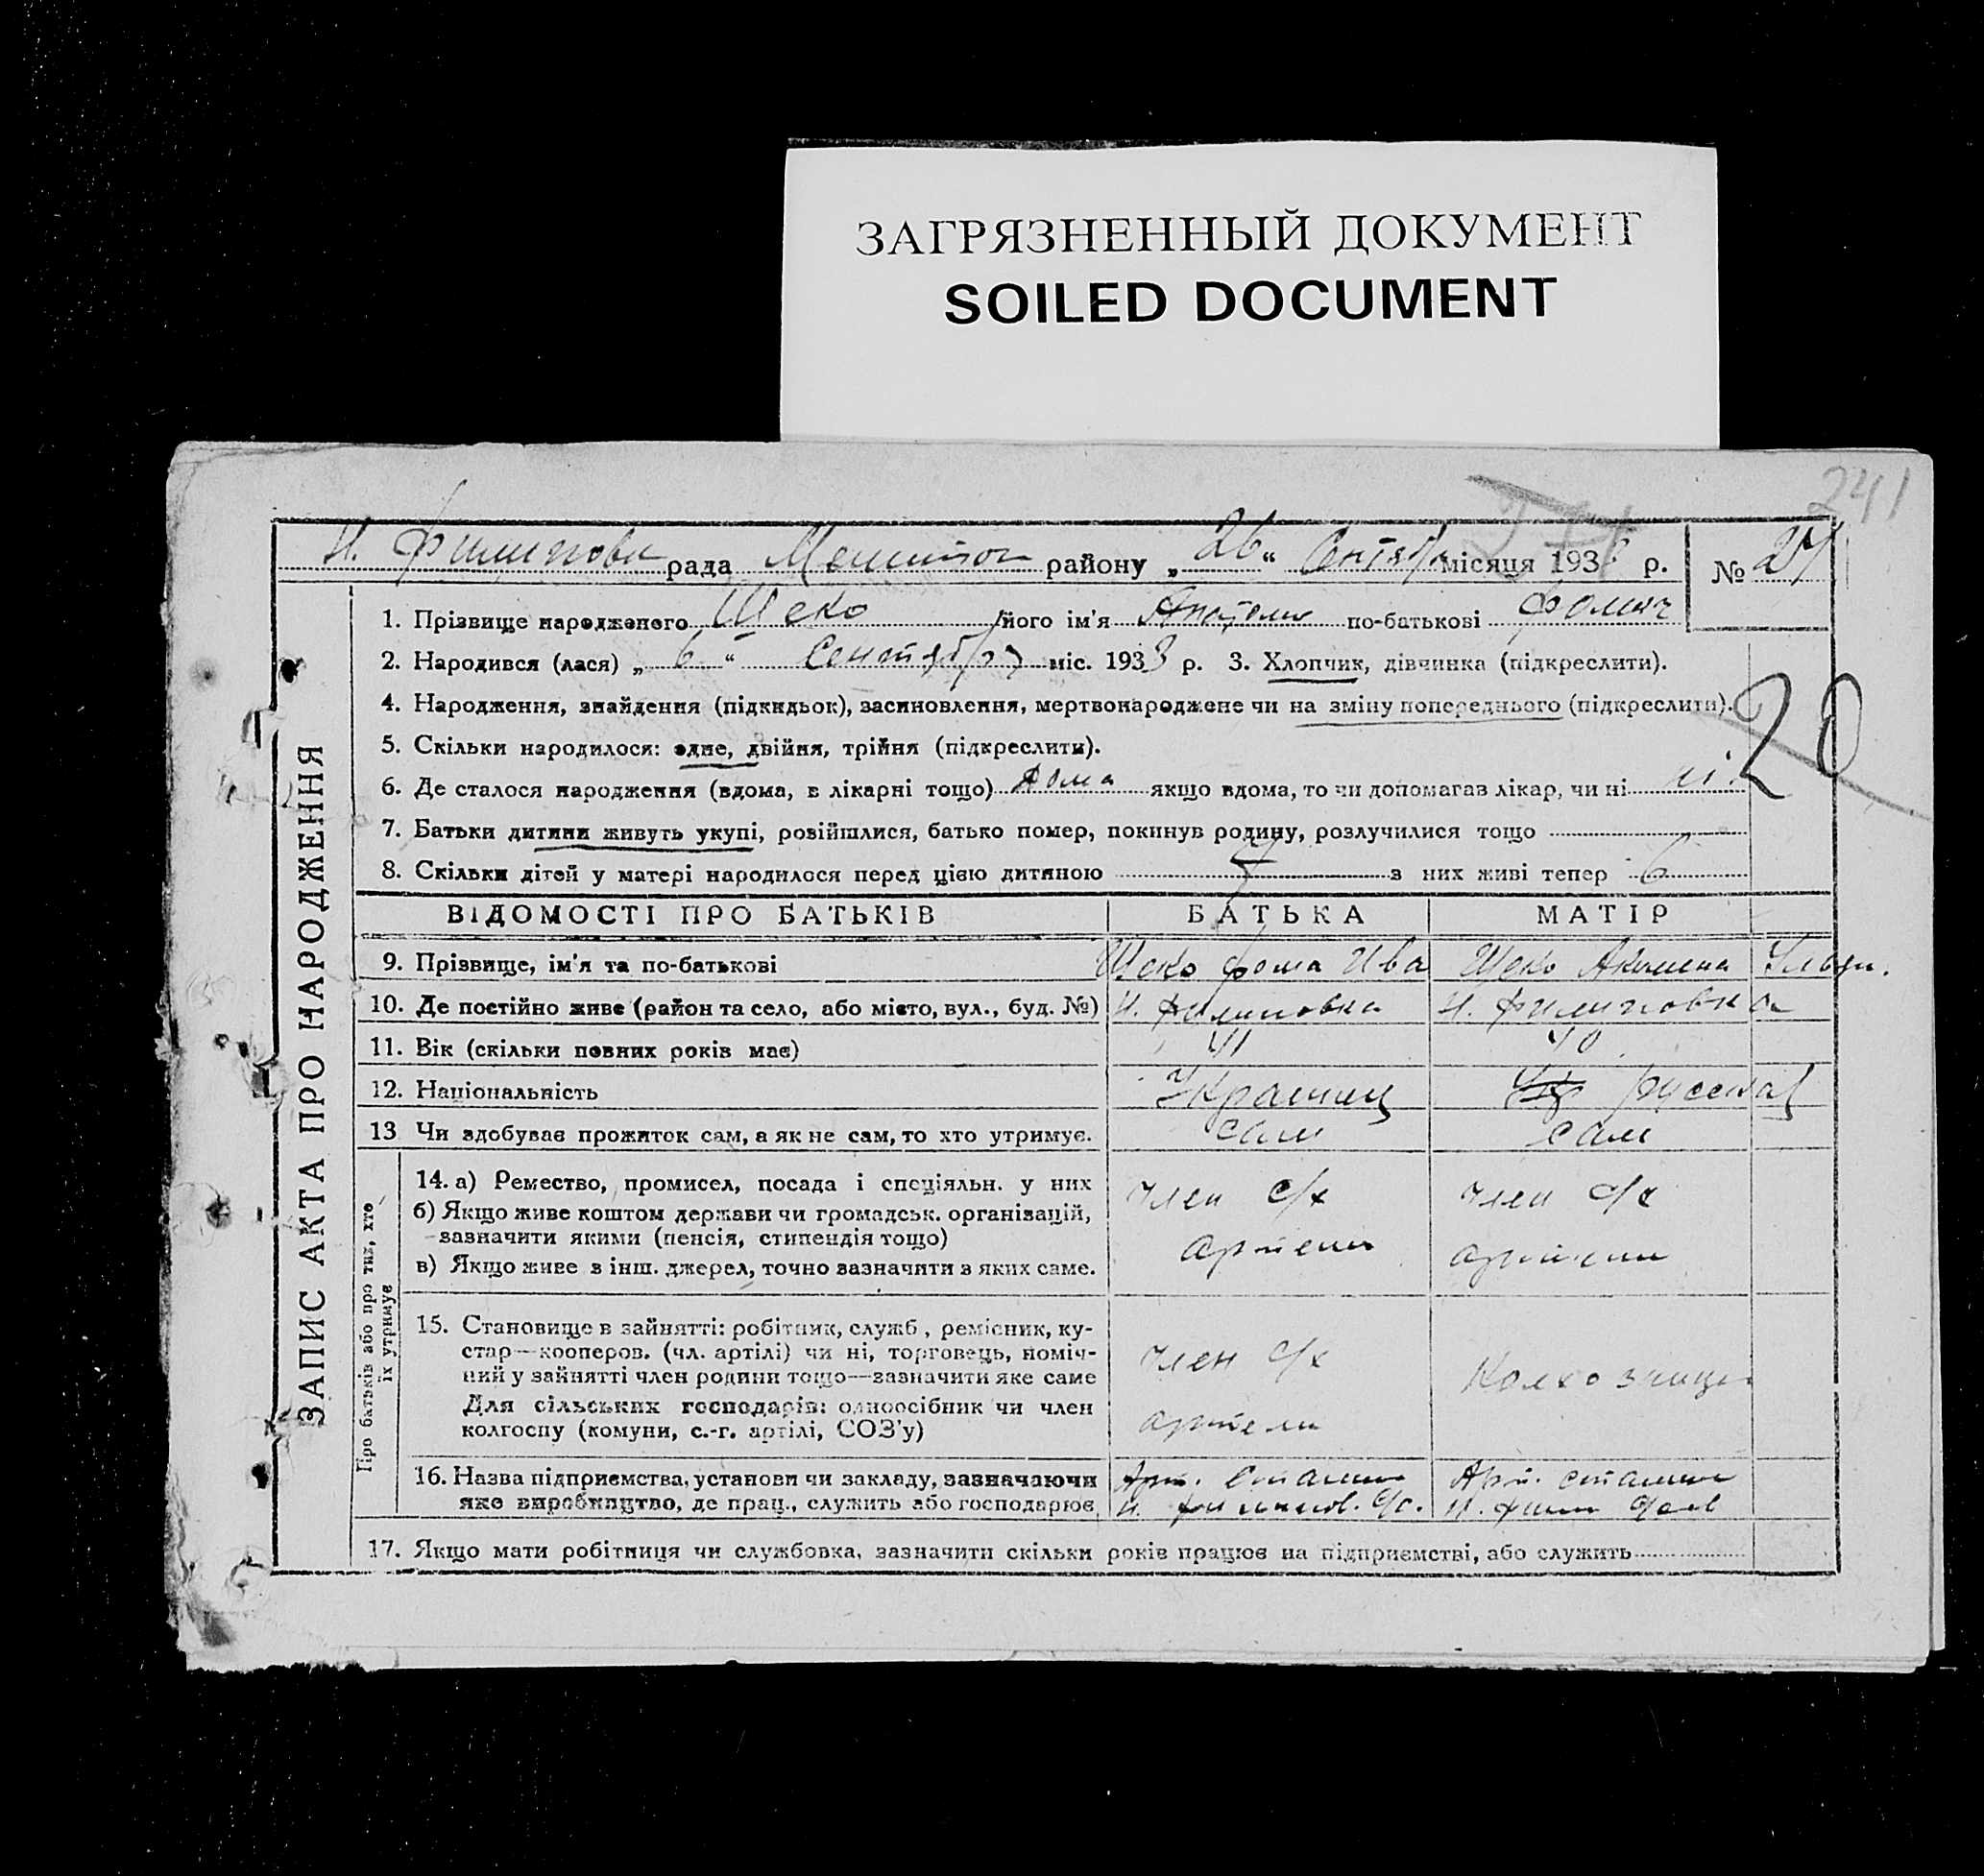 ЗАГРЯЗНЕННЫЙ ДОКУМЕНТ
SOILED DOCUMENT
241
Н. Филипови рада района району „26“ Сентябр місяця 1933 р. № 27
1. Прізвище народженого Щеко його ім'я Анатолии по-батькові Фомич
2. Народився (лася) „6“ Сентября міс. 1933 р. 3. Хлопчик, дівчинка (підкреслити).
4. Народження, знайдення (підкидьок), засиновлення, мертвонароджене чи на зміну попереднього (підкреслити).
20
5. Скільки народилося: одне, двійня, трійня (підкреслити).
6. Де сталося народження (вдома, в лікарні тощо) дома якщо вдома, то чи допомагав лікар, чи ні ні
7. Батьки дитини живуть укупі, розійшлися, батько помер, покинув родину, розлучилися тощо
8. Скільки дітей у матері народилося перед цією дитиною 7 з них живі тепер 6
ЗАПИС АКТА ПРО НАРОДЖЕННЯ
ВІДОМОСТІ ПРО БАТЬКІВ БАТЬКА МАТІР
9. Прізвище, ім'я та по-батькові Щеко Фома Ива Щеко Акилина
10. Де постійно живе (район та село, або місто, вул., буд. №) Н. Филиповка Н. Филиповка
11. Вік (скільки повних років має) 41 40
12. Національність Украинец Укр русская
13 Чи здобуває прожиток сам, а як не сам, то хто утримує. сам сам
Про батьків або про тих, хто їх утримує
14. а) Ремество, промисел, посада і спеціяльн. у них член с/х член с/х
б) Якщо живе коштом держави чи громадськ. організацій,
зазначити якими (пенсія, стипендія тощо) артели артели
в) Якщо живе з інш. джерел, точно зазначити з яких саме.
15. Становище в зайнятті: робітник, служб, ремісник, ку-
стар—кооперов. (чл. артілі) чи ні, торговець, поміч- член с/х
ний у зайнятті член родини тощо—зазначити яке саме Колхозница
Для сільських господарів: одноосібник чи член артели
колгоспу (комуни, с.-г. артілі, СОЗ'у)
16. Назва підприємства, установи чи закладу, зазначаючи Арт. Сталин Арт. Сталин
яке виробництво, де прац., служить або господарює Н. Филипов. с/с. Н. Филип
17. Якщо мати робітниця чи службовка, зазначити скільки років працює на підприємстві, або служить